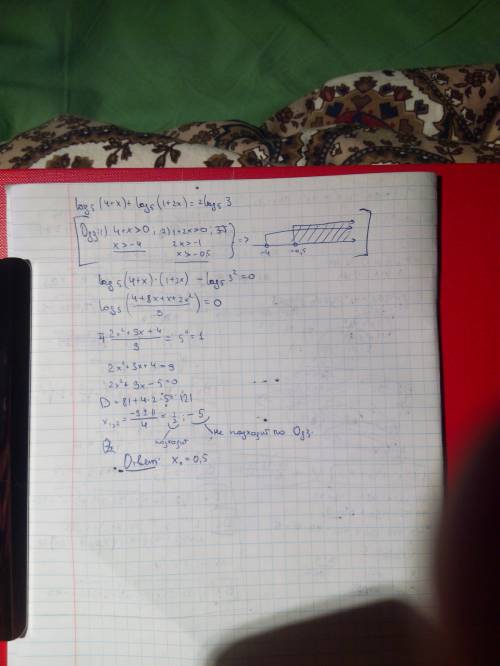 log₅(4+x)+log₅(1+2x)=2log₅3
Одз: 1) 4+x>0; 2) 1+2x>0; =>
x>-4 2x>-1
x>-0.5
-4 -0,5
log₅(4+x)·(1+2x) - log₅3²=0
log₅((4+8x+x+2x²)/9)=0
(2x²+9x+4)/9 = 5⁰=1
2x²+9x+4=9
2x²+9x-5=0
D=81+4·2·5=121
x₁,₂=(-9±11)/4=1/2; -5
подходит не подходит по Одз.
Ответ: x₀=0,5